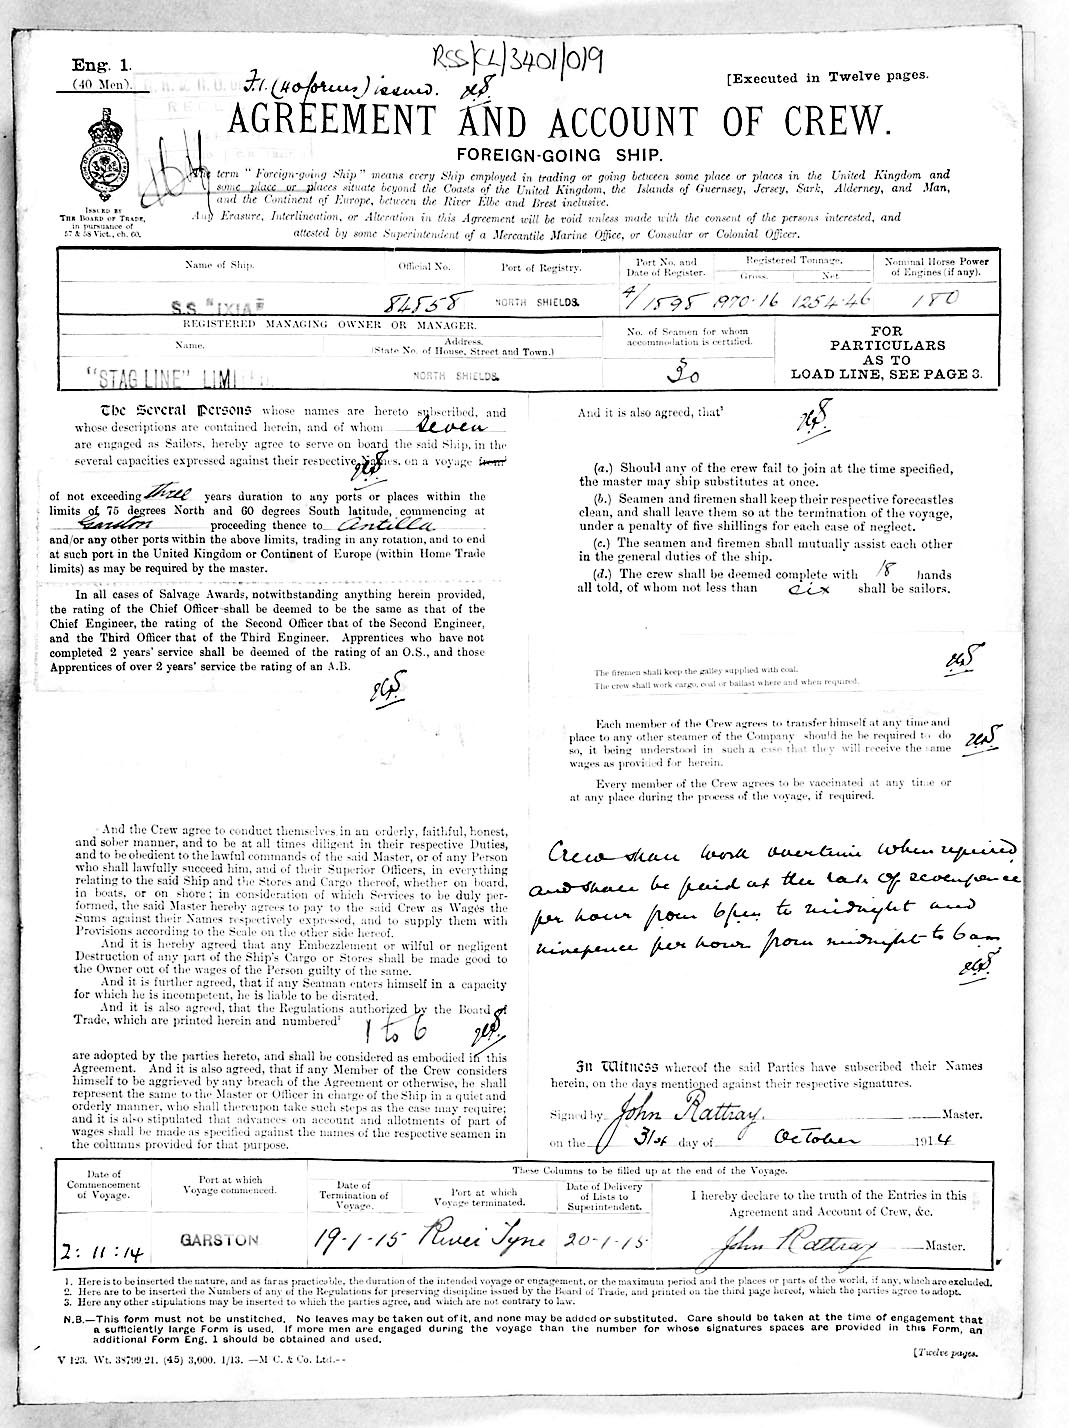 RSS/CL/3401/019
Eng. 1.
(40 Men).
F.1. (40 forms) issued.
[Executed in Twelve pages.
AGREEMENT AND ACCOUNT OF CREW.
FOREIGN-GOING SHIP.
The term "Foreign-going Ship" means every Ship employed in trading or going between some place or places in the United Kingdom and
some place or places situate beyond the Coasts of the United Kingdom, the Islands of Guernsey, Jersey, Sark, Alderney, and Man,
and the Continent of Europe, between the River Elbe and Brest inclusive.
Any Erasure, Interlineation, or Alteration in this Agreement will be void unless made with the consent of the persons interested, and
attested by some Superintendent of a Mercantile Marine Office, or Consular or Colonial Officer.
ISSUED BY
THE BOARD OF TRADE,
in pursuance of
57 & 58 Vict., ch. 60.
Name of Ship. Official No. Port of Registry. Port No. and Date of Register. Registered Tonnage. Gross. Net. Nominal Horse Power of Engines (if any).
S.S. "IXIA" 84858 NORTH SHIELDS. 4/1898 1970·16 1254·46 180
REGISTERED MANAGING OWNER OR MANAGER.
Name. Address. (State No. of House, Street and Town.)
No. of Seamen for whom accommodation is certified.
"STAG LINE" LIMITED. NORTH SHIELDS. 30
FOR
PARTICULARS
AS TO
LOAD LINE, SEE PAGE 3.
The Several Persons whose names are hereto subscribed, and
whose descriptions are contained herein, and of whom seven
are engaged as Sailors, hereby agree to serve on board the said Ship, in the
several capacities expressed against their respective Names, on a voyage from
of not exceeding three years duration to any ports or places within the
limits of 75 degrees North and 60 degrees South latitude, commencing at
Garston proceeding thence to Antilla
and/or any other ports within the above limits, trading in any rotation, and to end
at such port in the United Kingdom or Continent of Europe (within Home Trade
limits) as may be required by the master.
In all cases of Salvage Awards, notwithstanding anything herein provided,
the rating of the Chief Officer shall be deemed to be the same as that of the
Chief Engineer, the rating of the Second Officer that of the Second Engineer,
and the Third Officer that of the Third Engineer. Apprentices who have not
completed 2 years' service shall be deemed of the rating of an O.S., and those
Apprentices of over 2 years' service the rating of an A.B.
And the Crew agree to conduct themselves in an orderly, faithful, honest,
and sober manner, and to be at all times diligent in their respective Duties,
and to be obedient to the lawful commands of the said Master, or of any Person
who shall lawfully succeed him, and of their Superior Officers, in everything
relating to the said Ship and the Stores and Cargo thereof, whether on board,
in boats, or on shore; in consideration of which Services to be duly per-
formed, the said Master hereby agrees to pay to the said Crew as Wages the
Sums against their Names respectively expressed, and to supply them with
Provisions according to the Scale on the other side hereof.
And it is hereby agreed that any Embezzlement or wilful or negligent
Destruction of any part of the Ship's Cargo or Stores shall be made good to
the Owner out of the wages of the Person guilty of the same.
And it is further agreed, that if any Seaman enters himself in a capacity
for which he is incompetent, he is liable to be disrated.
And it is also agreed, that the Regulations authorized by the Board of
Trade, which are printed herein and numbered² 1 to 6
are adopted by the parties hereto, and shall be considered as embodied in this
Agreement. And it is also agreed, that if any Member of the Crew considers
himself to be aggrieved by any breach of the Agreement or otherwise, he shall
represent the same to the Master or Officer in charge of the Ship in a quiet and
orderly manner, who shall thereupon take such steps as the case may require;
and it is also stipulated that advances on account and allotments of part of
wages shall be made as specified against the names of the respective seamen in
the columns provided for that purpose.
And it is also agreed, that³
(a.) Should any of the crew fail to join at the time specified,
the master may ship substitutes at once.
(b.) Seamen and firemen shall keep their respective forecastles
clean, and shall leave them so at the termination of the voyage,
under a penalty of five shillings for each case of neglect.
(c.) The seamen and firemen shall mutually assist each other
in the general duties of the ship.
(d.) The crew shall be deemed complete with 18 hands
all told, of whom not less than six shall be sailors.
The firemen shall keep the galley supplied with coal.
The crew shall work cargo, coal or ballast where and when required.
Each member of the Crew agrees to transfer himself at any time and
place to any other steamer of the Company should he be required to do
so, it being understood in such a case that they will receive the same
wages as provided for herein.
Every member of the Crew agrees to be vaccinated at any time or
at any place during the process of the voyage, if required.
Crew shall work overtime when required
and shall be paid at the rate of sevenpence
per hour from 6 p.m. to midnight and
ninepence per hour from midnight to 6 am
In Witness whereof the said Parties have subscribed their Names
herein, on the days mentioned against their respective signatures.
Signed by John Rattray. Master.
on the 31st day of October 1914
These Columns to be filled up at the end of the Voyage.
Date of Commencement of Voyage. Port at which Voyage commenced. Date of Termination of Voyage. Port at which Voyage terminated. Date of Delivery of Lists to Superintendent. I hereby declare to the truth of the Entries in this Agreement and Account of Crew, &c.
2:11:14 GARSTON 19-1-15 River Tyne 20-1-15 John Rattray Master.
1. Here is to be inserted the nature, and as far as practicable, the duration of the intended voyage or engagement, or the maximum period and the places or parts of the world, if any, which are excluded.
2. Here are to be inserted the Numbers of any of the Regulations for preserving discipline issued by the Board of Trade, and printed on the third page hereof, which the parties agree to adopt.
3. Here any other stipulations may be inserted to which the parties agree, and which are not contrary to law.
N.B.—This form must not be unstitched. No leaves may be taken out of it, and none may be added or substituted. Care should be taken at the time of engagement that
a sufficiently large Form is used. If more men are engaged during the voyage than the number for whose signatures spaces are provided in this Form, an
additional Form Eng. 1 should be obtained and used.
V 123. Wt. 38799/21. (45) 3,000. 1/13. —M C. & Co. Ltd.--
[Twelve pages.